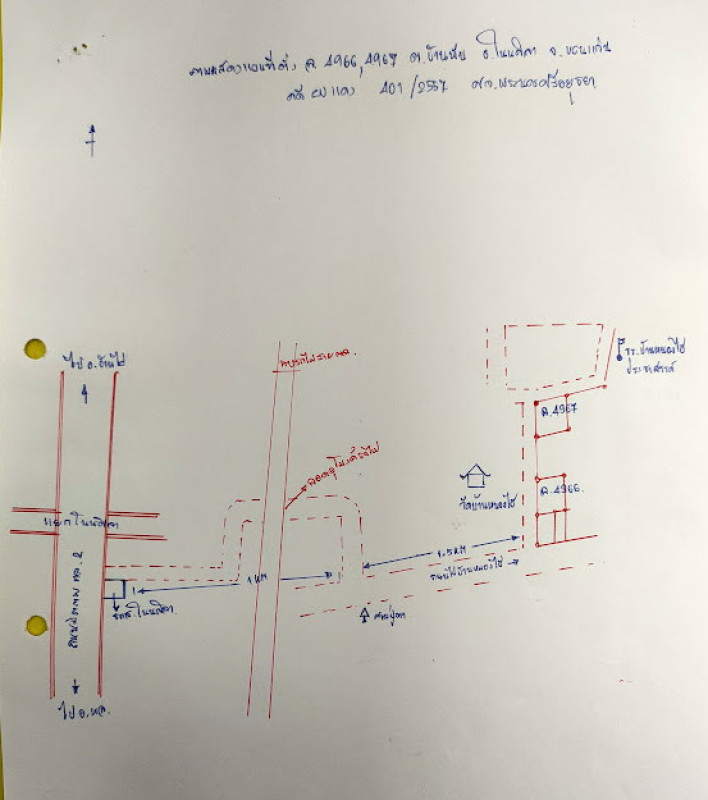 ภาพแสดงแผนที่ตั้ง ฉ. 4966, 4967 ต. อ. โนนศิลา จ. ขอนแก่น
คดี แดง 401 /2557 ศจ. พระนครศรีอยุธยา
ไป อ. บ้านไผ่
ทางรถไฟ
รร. บ้านหนองไฮ
ประชาสรรค์
ฉ. 4967
ลอดอุโมงค์รถไฟ
ฉ. 4966.
วัดบ้านหนองไฮ
แยกโนนศิลา
1.5 KM
ถนนไปบ้านหนองไฮ
1 KM
ถนนมิตรภาพ 2
โนนศิลา.
ศาลปู่ตา
ไป อ. พล.